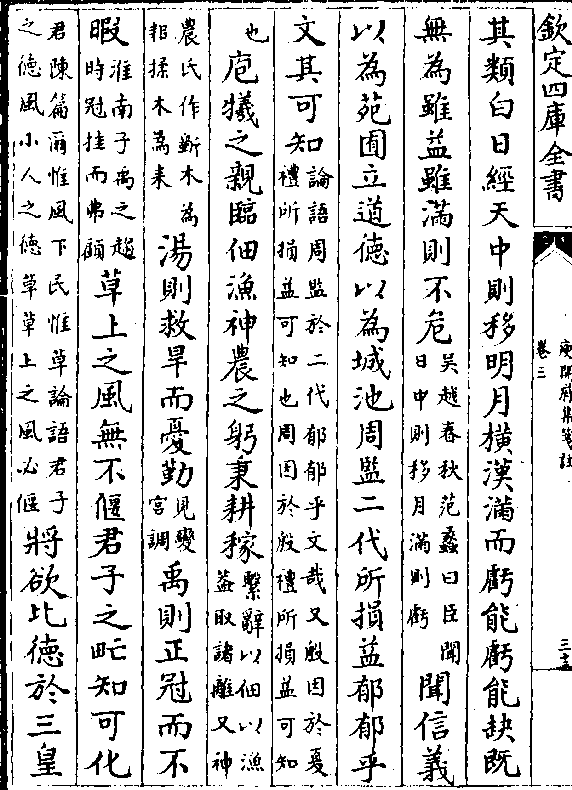 欽定四庫全書
庾開府集箋註
卷三
其類白日經天中則移明月橫漢滿而虧能虧能缺既
無為雖益雖滿則不危吳越春秋范蠡曰臣聞日中則移月滿則虧聞信義
以為苑囿立道德以為城池周監二代所損益郁郁乎
文其可知論語周監於二代郁郁乎文哉又殷因於夏禮所損益可知也周因於殷禮所損益可知
也庖犧之親臨佃漁神農之躬秉耕稼繫辭以佃以漁蓋取諸離又神
農氏作斲木為耜揉木為耒湯則救旱而憂勤見變宮調禹則正冠而不
暇淮南子禹之趨時冠挂而弗顧草上之風無不偃君子之甿知可化
君陳篇爾惟風下民惟草論語君子之德風小人之德草草上之風必偃將欲比德於三皇